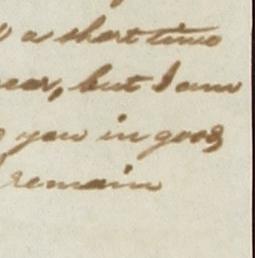 a short time
but I am
you in good
remain